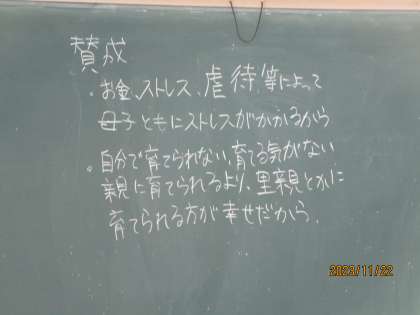 賛成
・お金、ストレス、虐待、等によって
母子ともにストレスがかかるから
・自分で育てられない、育てる気がない
親に育てられるより、里親とかに
育てられる方が幸せだから.
2023/11/22